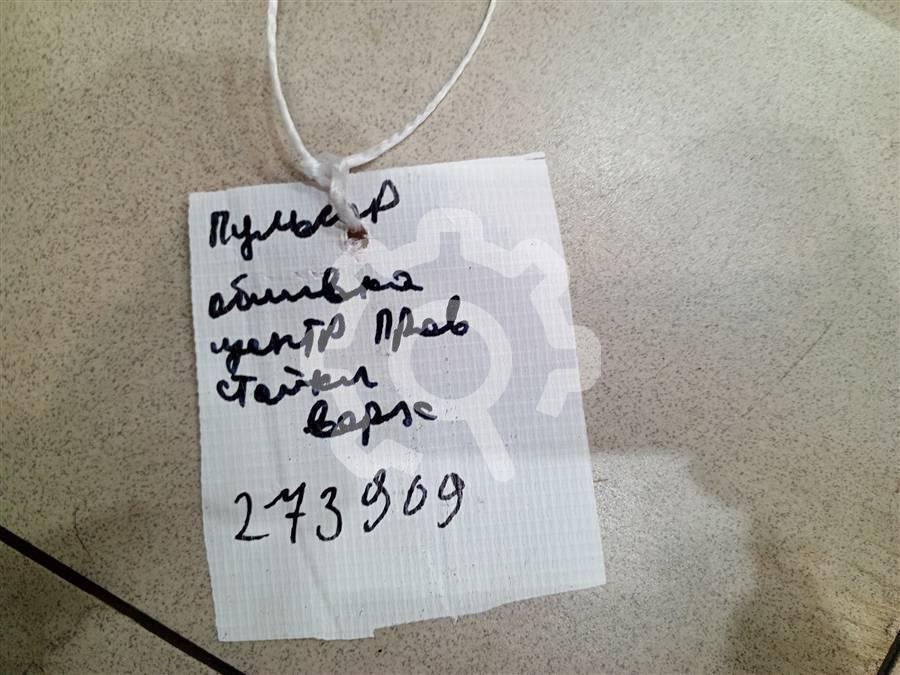 Пульсар
обшивка
центр прав
стойки
верх
273909